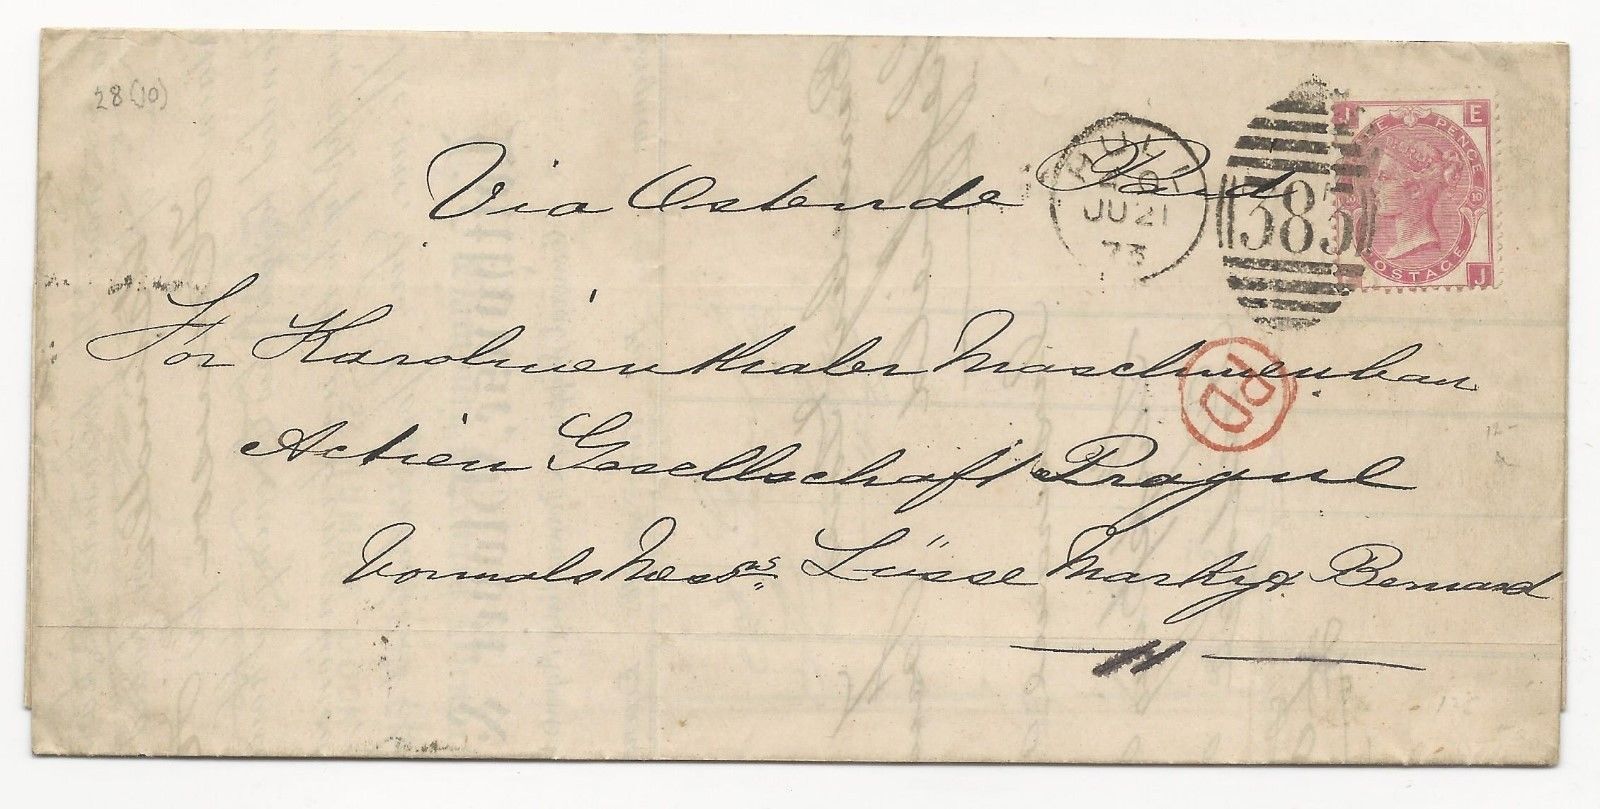 28 (10)
Via Ostende Paid
HULL
JU 21
73
383
J E
THREE PENCE
10 10
POSTAGE
E J
For Karolinenthaler Maschinenbau
PD
Actien Gesellschaft Prague
Vormals Messrs Lüsse Marky & Bernard